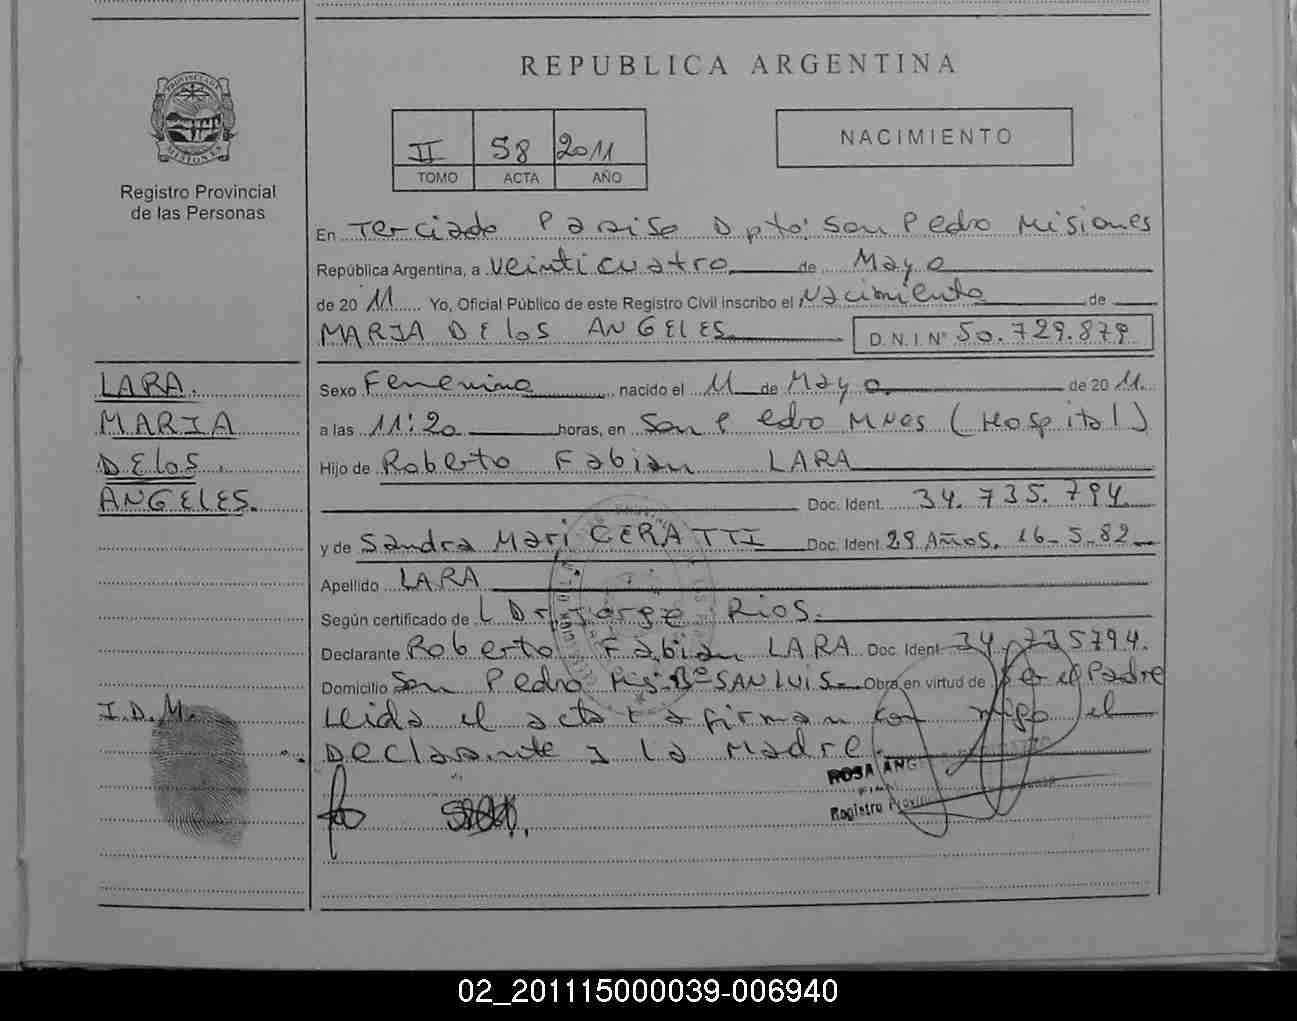 PROVINCIA DE
MISIONES
Registro Provincial
de las Personas
REPUBLICA ARGENTINA
II 58 2011
TOMO ACTA AÑO
NACIMIENTO
En Terciado Paraiso Dpto: San Pedro Misiones
República Argentina, a veinticuatro de Mayo
de 2011 Yo, Oficial Público de este Registro Civil inscribo el Nacimiento de
MARIA DElos ANGELES D.N.I. N° 50.729.879
LARA.
MARIA
DElos.
ANGELES.
Sexo Femenino nacido el 11 de Mayo de 2011
a las 11:20 horas, en San Pedro Mnes (Hospital)
Hijo de Roberto Fabian LARA
Doc. Ident. 34.735.794
y de Sandra Mari CERATTI Doc. Ident. 29 Años. 16-5-82
Apellido LARA
Según certificado de L Dr. Jorge Rios.
Declarante Roberto Fabian LARA Doc. Ident. 34.735794.
Domicilio San Pedro Ms. B° SAN LUIS Obra en virtud de Ser el Padre
I.D.M.
Leida el acta la firman con migo el
Declarante y la Madre.
ROSA ANG
Registro Provinc
02_201115000039-006940